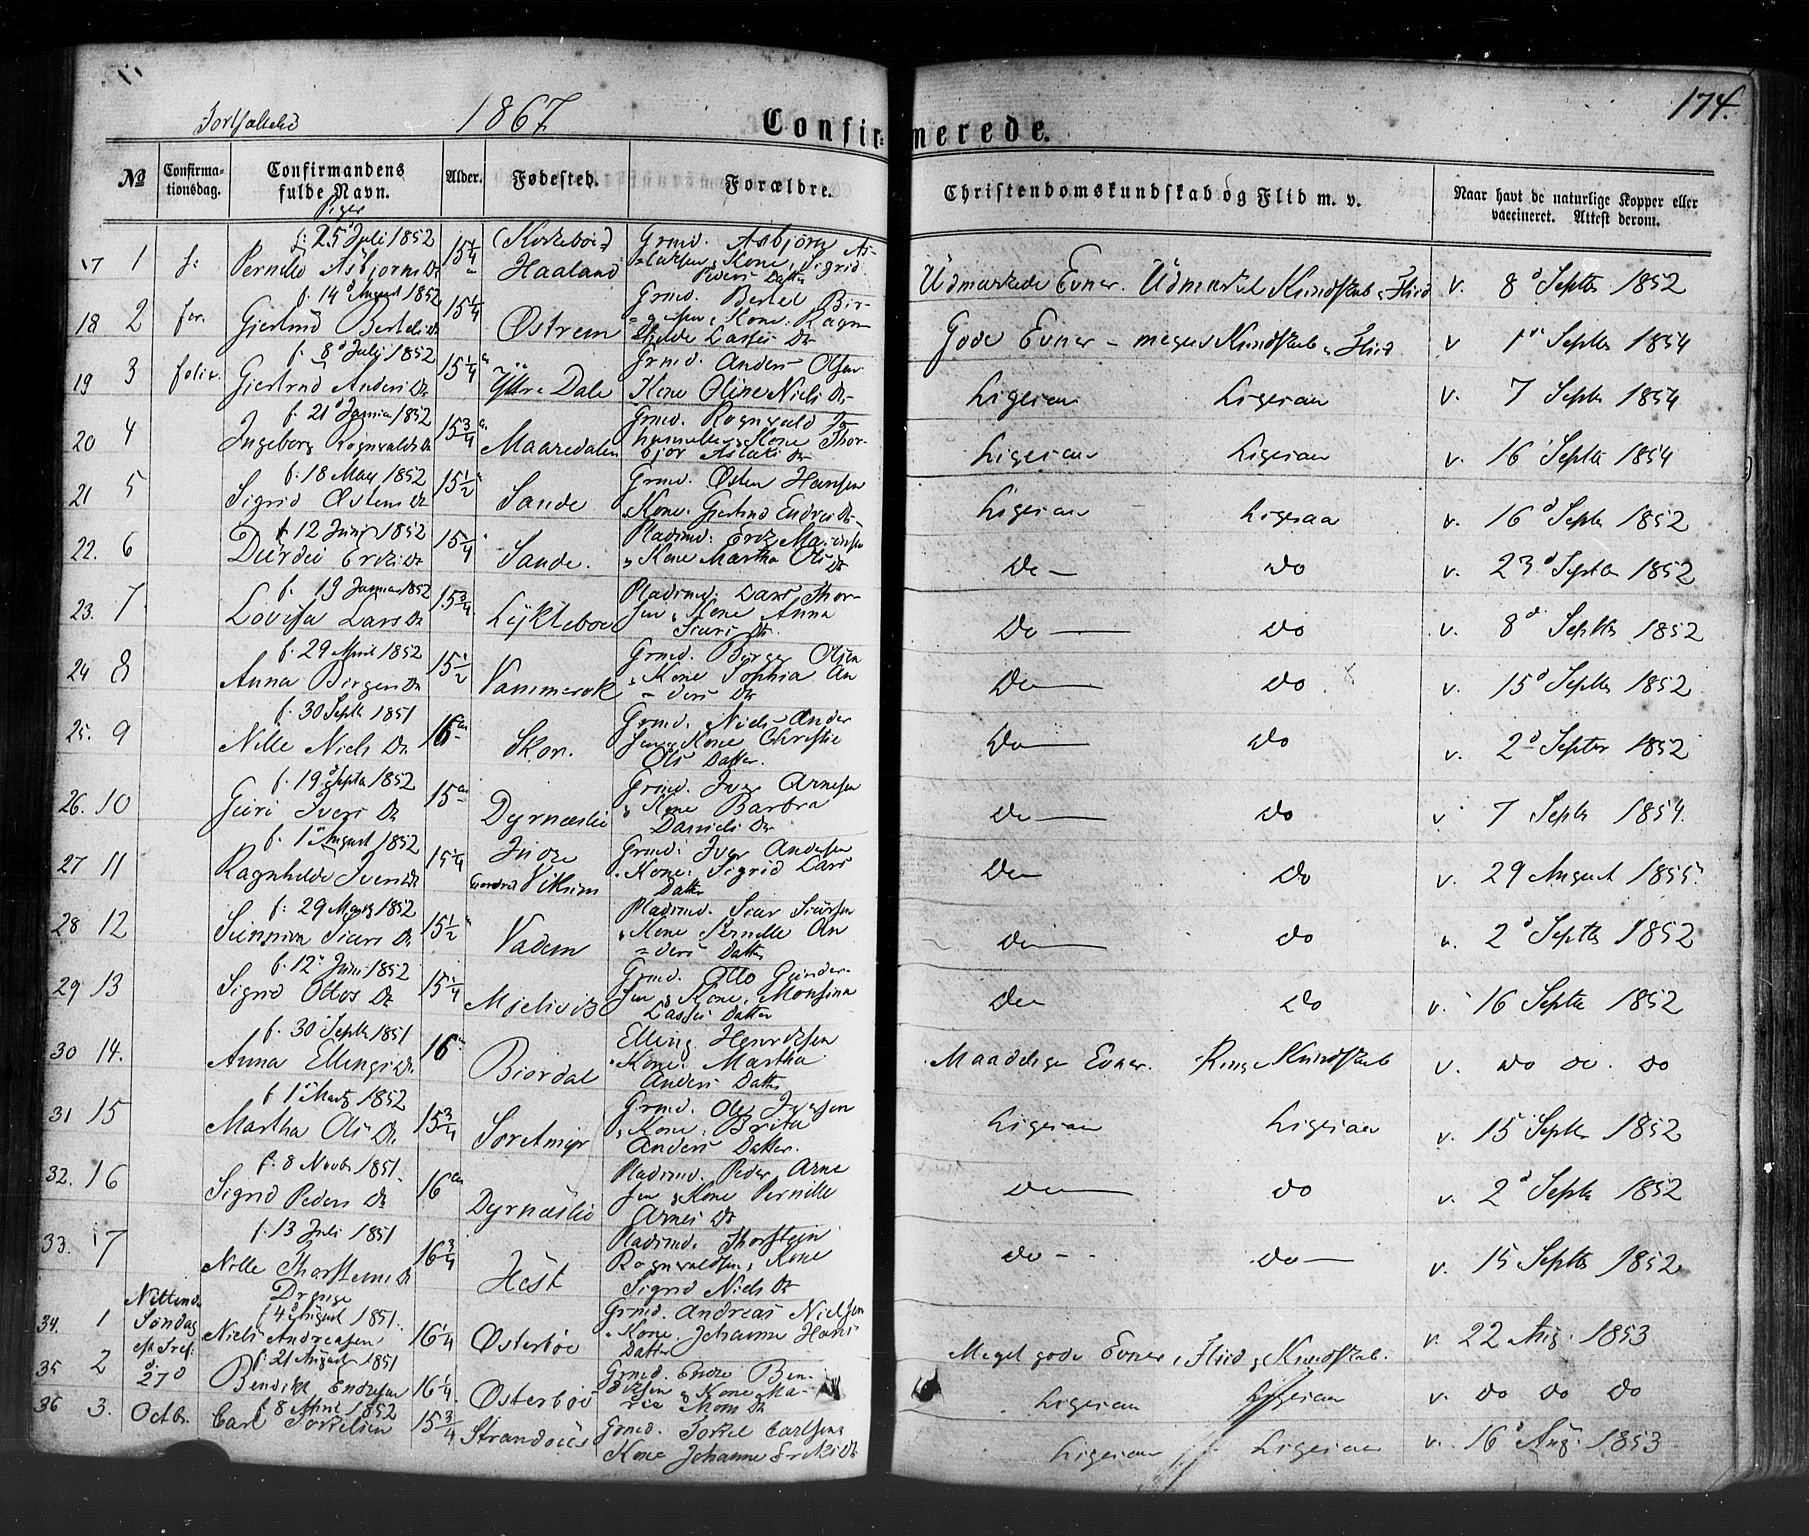 1867
Confirmerede.
174.
№
Confirmationsdag.
Confirmandens fulde Navn.
Alder.
Fødested.
Forældre.
Christendomskundskab og Flid m. v.
Naar havt de naturlige Kopper eller vaccineret. Attest derom.
Piger
17 1 f: 25 Juli 1852 15 1/4 Grmd. Asbjørn As-
Haaland Kone, Sigrid
Peders Datter
Udmærkede Evner. Udmærket Kundskab & Flid v. 8 Septbr 1852
18 2 f. 14 August 1852 15 1/4 Grmd. Bertel Bir-
Gjertrud Bertels Dr Østrem Kone Ragn-
hilde Lasses Dr
Gode Evner – megen Kundskab & Flid v 1 Septbr 1854
19 3 f. 8 Juli 1852 15 1/4 Grmd. Anders Olsen
Gjertrud Anders Dr Yttre Dale Kone Oline Niels Dr
Ligesaa Ligesaa v. 7 Septb 1854
20 4 f. 21 Januar 1852 15 3/4 Grmd. Rognvald Jo-
Ingeborg Rognvalds Dr Maaredalen Kone Thor-
bjør Aslaks Dr
Ligesaa Ligesaa v. 16 Septbr 1854
21 5 f. 18 May 1852 15 1/2 Grmd. Østen Hansen
Sigrid Østens Dr Sande Kone Gjertrud Endres Dr
Ligesaa Ligesaa v. 16 Septb 1852
22. 6 f. 12 Juni 1852 15 1/4 Pladsmd. Erik
Erics Dr Sande. & Kone Martha Ols Dr
Do – Do v. 23 Septbr 1852
23. 7 f. 19 Januar 1852 15 3/4 Pladsmd. Lars Thor-
Lovisa Lars Dr Lykkeboe sen & Kone Anna
Siurs Dr.
Do Do v. 8 Septbr 1852
24 8 f. 29 April 1852 15 1/2 Grmd. Børge Olsen
Anna Børges Dr & Kone Sophia An
– ders Dr
Do Do v. 15 Septbr 1852
25. 9 f. 30 Septb 1851 16 Grmd. Niels Ander
Nille Niels Dr Skor. sen & Kone Christie
Ols Datter.
Do Do v. 2 Septbr 1852
26. 10 f. 19 Septb 1852 15 Grmd. Iver Arnesen
Guri Ivers Dr Dyrnæslie & Kone Barbra
Daniels Dr
Do Do v 7 Septb 1854.
27 11 f. 1 August 1852 15 1/4 Grmd. Iver Andersen
Ragnhilde Ivers Dr Indre Kone Sigrid Lars
Datter
Do Do v. 29 August 1855.
28 12 f. 29 Marts 1852 15 1/2 Pladsmd. Siur Siursen
Sunniva Siurs Dr Vadem & Kone Pernille An
= ders Datter
Do Do v. 2 Septbr 1852
29 13 f. 12 Juni 1852 15 1/4 Grmd. Otto Gunder-
Sigrid Ottos Dr Mjelsvik sen & Kone, Monsina
Lasses Datter
Do Do v. 16 Septbr 1852
30 14. f. 30 Septb 1851 16 Elling Henriksen
Anna Ellings Dr Biordal Kone. Martha
Anders Datter
Maadelige Evner. Ringe Kundskab v. Do Do. Do
31 15 f 1 Marts 1852 15 3/4 Grmd. Ole
Martha Ols Dr. Søretmyr & Kone. Brita
Anders Datter.
Ligesaa Ligesaa v. 15 Septbr 1852
32. 16 f. 8 Novbr 1851. 16 Pladsmd. Peder Arne
Sigrid Peders Dr Dyrnæslie sen & Kone Pernille
Arnes Dr
Do Do v. 2 Septb 1852
33. 17 f. 13 Juli 1851 16 3/4 Pladsmd. Thorstein
Nille Thorsteins Dr Høst Rognvaldsen, Kone
Sigrid Niels Dr
Do Do v. 15 Septbr 1852.
Drenge
34. 1 Søndag f 4 August 1851. 16 1/4 Grmd. Andreas Nielsen
Niels Andreasen Østerbøe & Kone. Johanne Hans
Datter
Meget gode Evner, Flid & Kundskab. v. 22 Aug. 1853
35 2 27 f. 21 August 1851 16 1/4 Grmd. Endre Ben-
Bendikt Endresen Østerbøe diksen & Kone Ma-
Mons Dr
Ligesaa Ligesaa v. Do Do Do
36 3. Octbr. f 8 April 1852 15 3/4
Carl Torkelsen Strandøes Grmd. Torkel Carlsen &
Kone Johanne Eriks Dr
Ligesaa Ligesaa v. 16 Aug. 1853